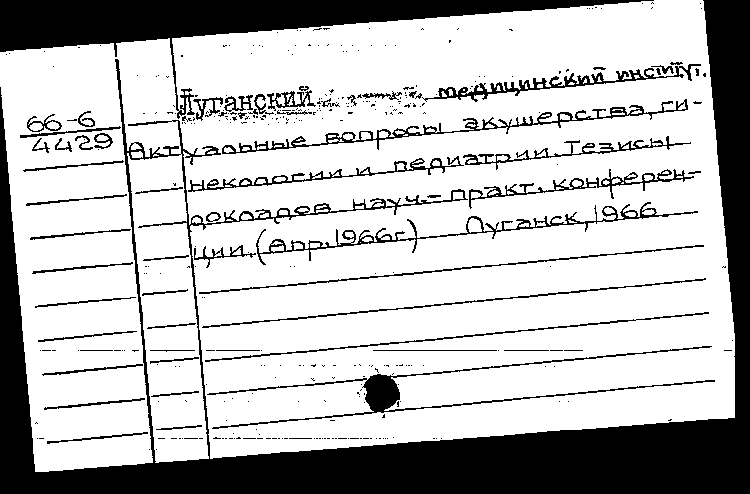 Луганский медицинский институт.
66-6
4429
Актуальные вопросы акушерства, ги-
некологии и педиатрии. Тезисы
докладов науч.-практ. конферен-
ции. (Апр. 1966г.) Луганск, 1966.